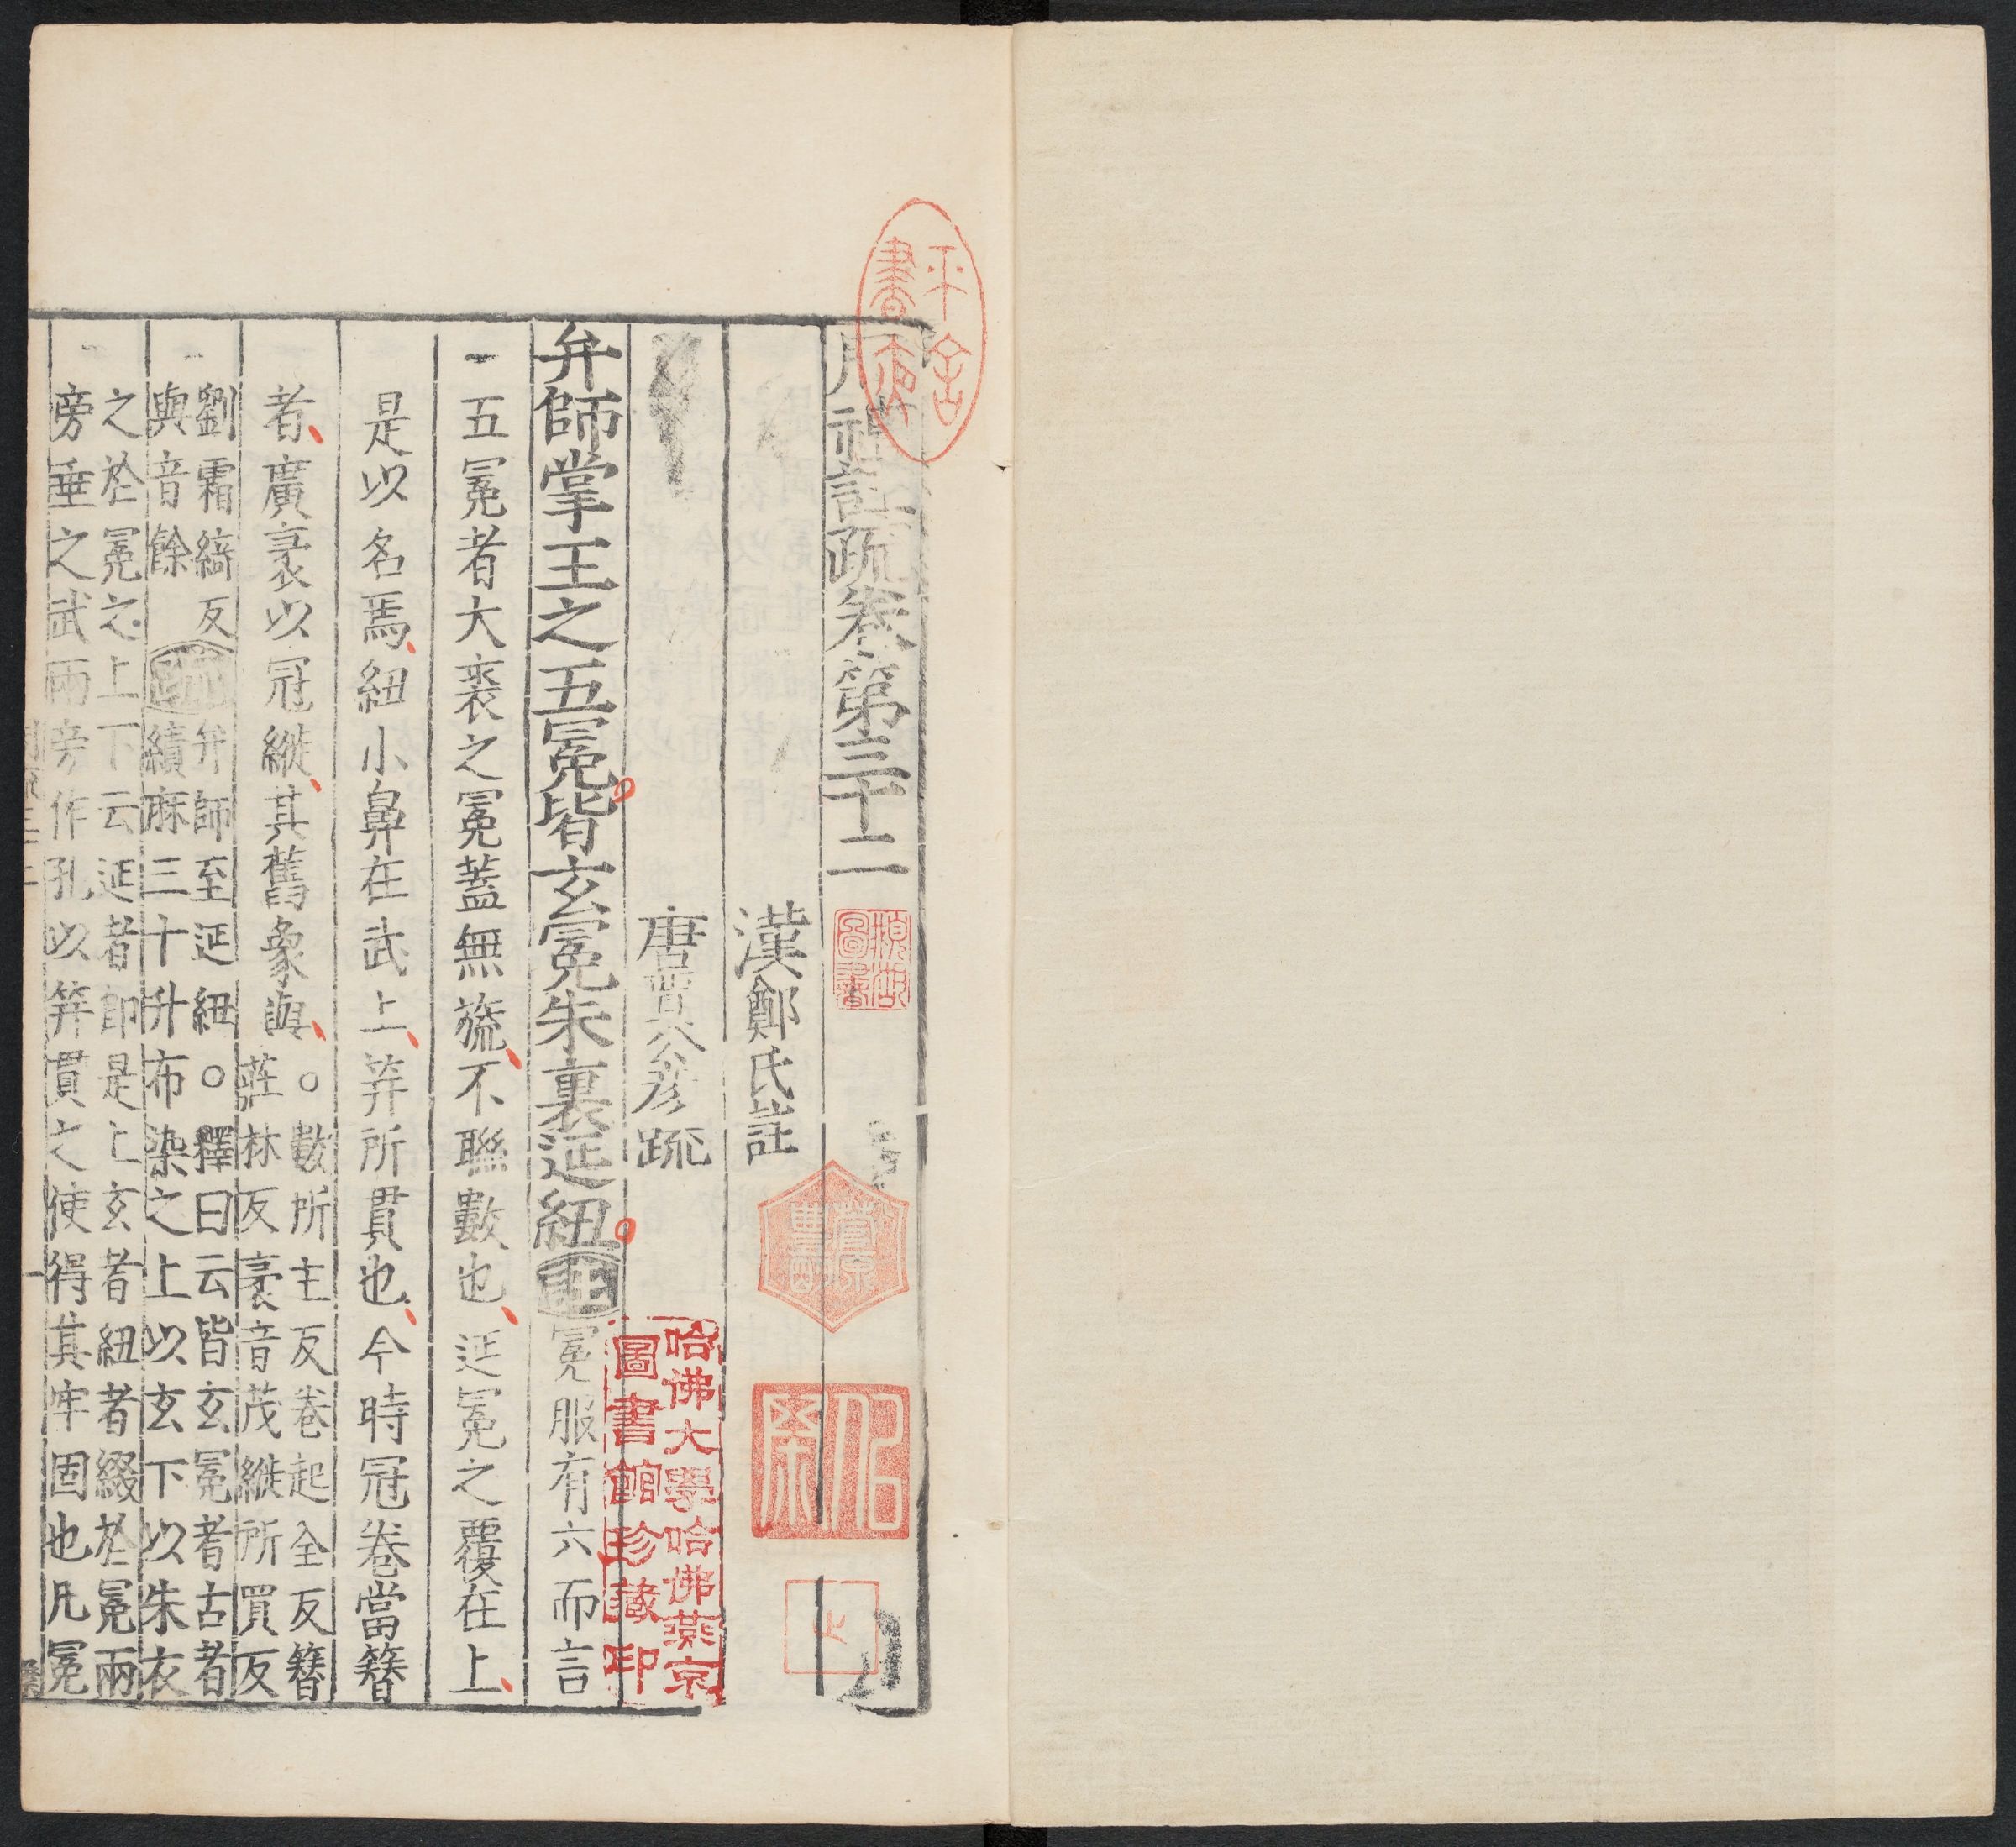 周禮註疏卷第三十二
漢鄭氏註
唐賈公彥疏
弁師掌王之五冕皆玄冕朱裏延紐註冕服有六而言
五冕者大裘之冕蓋無旒不聯數也延冕之覆在上
是以名焉紐小鼻在武上笄所貫也今時冠卷當簪
者廣袤以冠縰其舊象與○數所主反卷起全反簪
莊林反袤音茂縰所買反
劉霜綺反疏弁師至延紐○釋曰云皆玄冕者古者
與音餘績麻三十升布染之上以玄下以朱衣
之於冕之上下云延者即是上玄者紐者綴於冕兩
旁垂之武兩旁作孔以笄貫之使得其牢固也凡冕
哈佛大學哈佛燕京
圖書館珍藏印